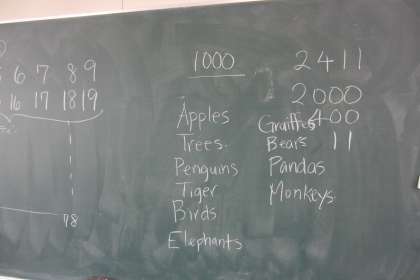 6 7 8 9
16 17 18 19
78
1000
Apples
Trees.
Penguins
Tiger
Birds
Elephants
2411
2000
400
11
Bears
Pandas
Monkeys